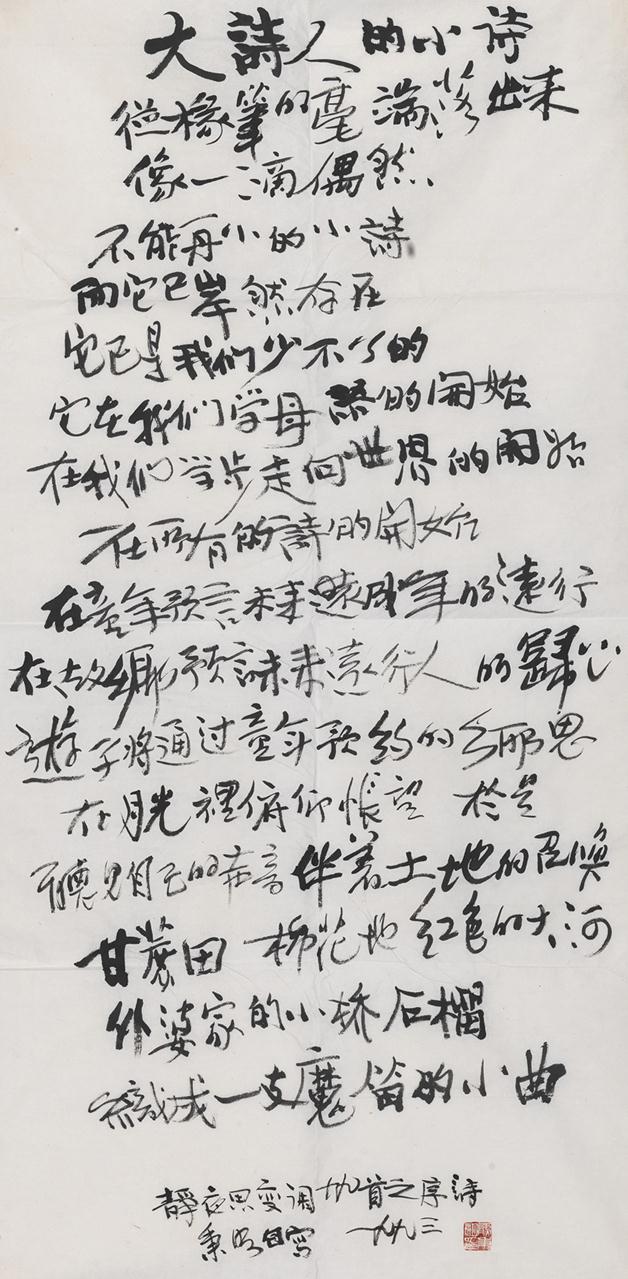 大詩人的小诗
從椽筆的毫端落出来
像一滴偶然
不能再小的小詩
而它已岸然存在
它已是我们少不了的
它在我们学母語的開始
在我们学步走向世界的開始
在所有的詩的開始
在童年預言未来成年的遠行
在故鄉預言未来遠行人的歸心
遊子将通过童年預約的乡思
在月光裡俯仰悵望 於是
聽見自己的音伴着土地的召唤
甘蔗田 棉花地 红色的大河
外婆家的小橋石榴
織成一支魔笛的小曲
靜夜思变调廿九首之序詩
秉明自写 一九九三